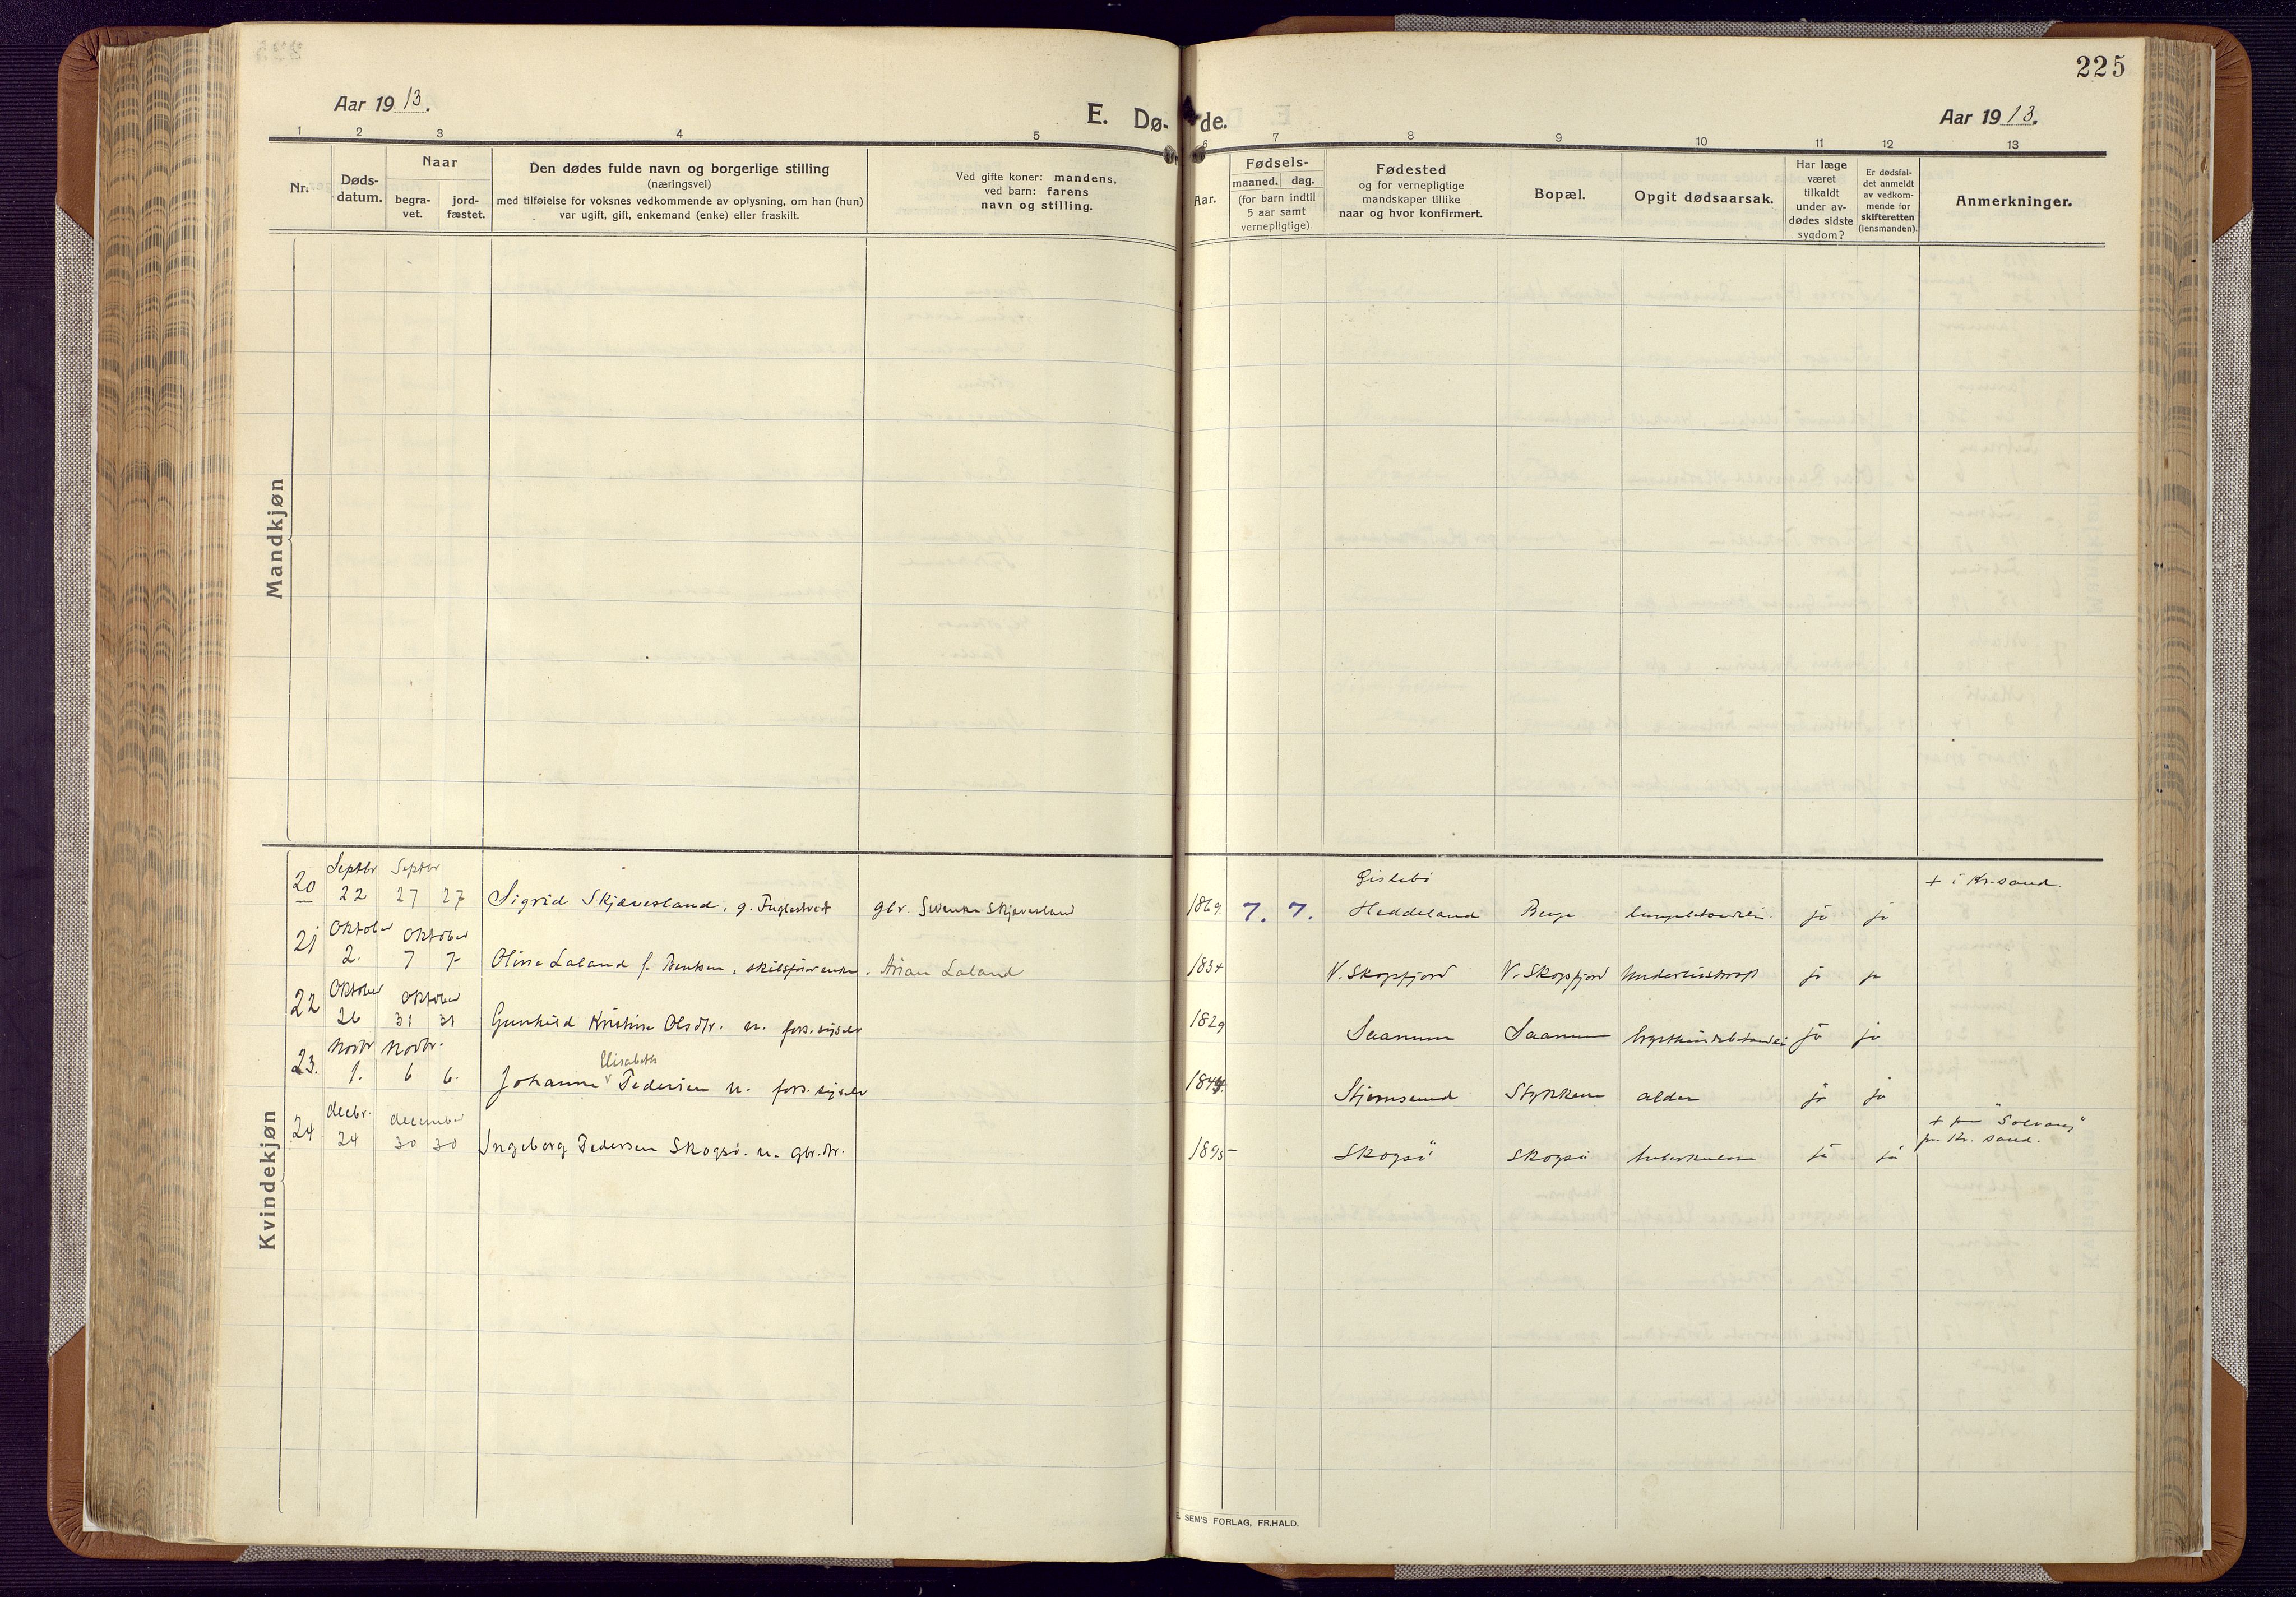 225
Aar 1913.
E. Dø- de.
Aar 1913.
1 2 3 4 5 6 7 8 9 10 11 12 13
Nr.
Døds-
datum.
Naar
begra-
vet.
jord-
fæstet.
Den dødes fulde navn og borgerlige stilling
(næringsvei)
med tilføielse for voksnes vedkommende av oplysning, om han (hun)
var ugift, gift, enkemand (enke) eller fraskilt.
Ved gifte koner: mandens,
ved barn: farens
navn og stilling.
Aar.
Fødsels-
maaned. dag.
(for barn indtil
5 aar samt
vernepligtige)
Fødested
og for vernepligtige
mandskaper tillike
naar og hvor konfirmert.
Bopæl.
Opgit dødsaarsak.
Har læge
været
tilkaldt
under av-
dødes sidste
sygdom?
Er dødsfal-
det anmeldt
av vedkom-
mende for
skifteretten
(lensmanden).
Anmerkninger.
Mandkjøn
Kvindekjøn
Septbr Septbr Gislebö + i Kr.sand.
20 22 27 27 Sigrid Skjævesland, g. gbr. Skjævesland 1869. 7. 7. Heddeland Berge ja ja
Oktober Oktober
21 2. 7 7 Oline Laland f. Bentsen, skibsförerenke. Arian Laland 1834 V. Skogsfjord V. Skogsfjord ja ja
Oktober Oktober
22 26 31 31 Gunhild Kristine Olsdtr. u. fors. 1829 Saanum Saanum ja ja
Novbr Novbr. Elisabeth
23. 1. 6 6. Johanne Pedersen u. fors. 1844. Stjernsund Stykkene alder ja ja
decbr. december + paa "Solvang"
24 24 30 30 Ingeborg Pedersen Skogsö. u. gbr.dtr. 1895 Skogsö Skogsö tuberkulose ja ja pr. Kr. sand.
E. SEM'S FORLAG, FR.HALD.